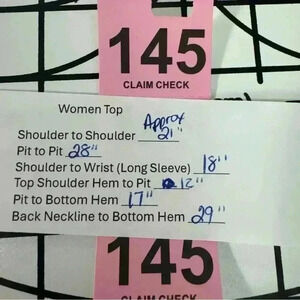 145
CLAIM CHECK
Women Top
Approx
Shoulder to Shoulder 21"
Pit to Pit 28"
Shoulder to Wrist (Long Sleeve) 18"
Top Shoulder Hem to Pit 12"
Pit to Bottom Hem 17"
Back Neckline to Bottom Hem 29"
145
CLAIM CHECK